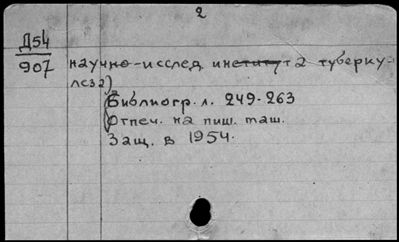 2
Д54
907
научно-исслед. институт а туберку-
леза)
(Библиогр. л. 249-263
Отпеч. на пиш. маш.
Защ. в 1954.